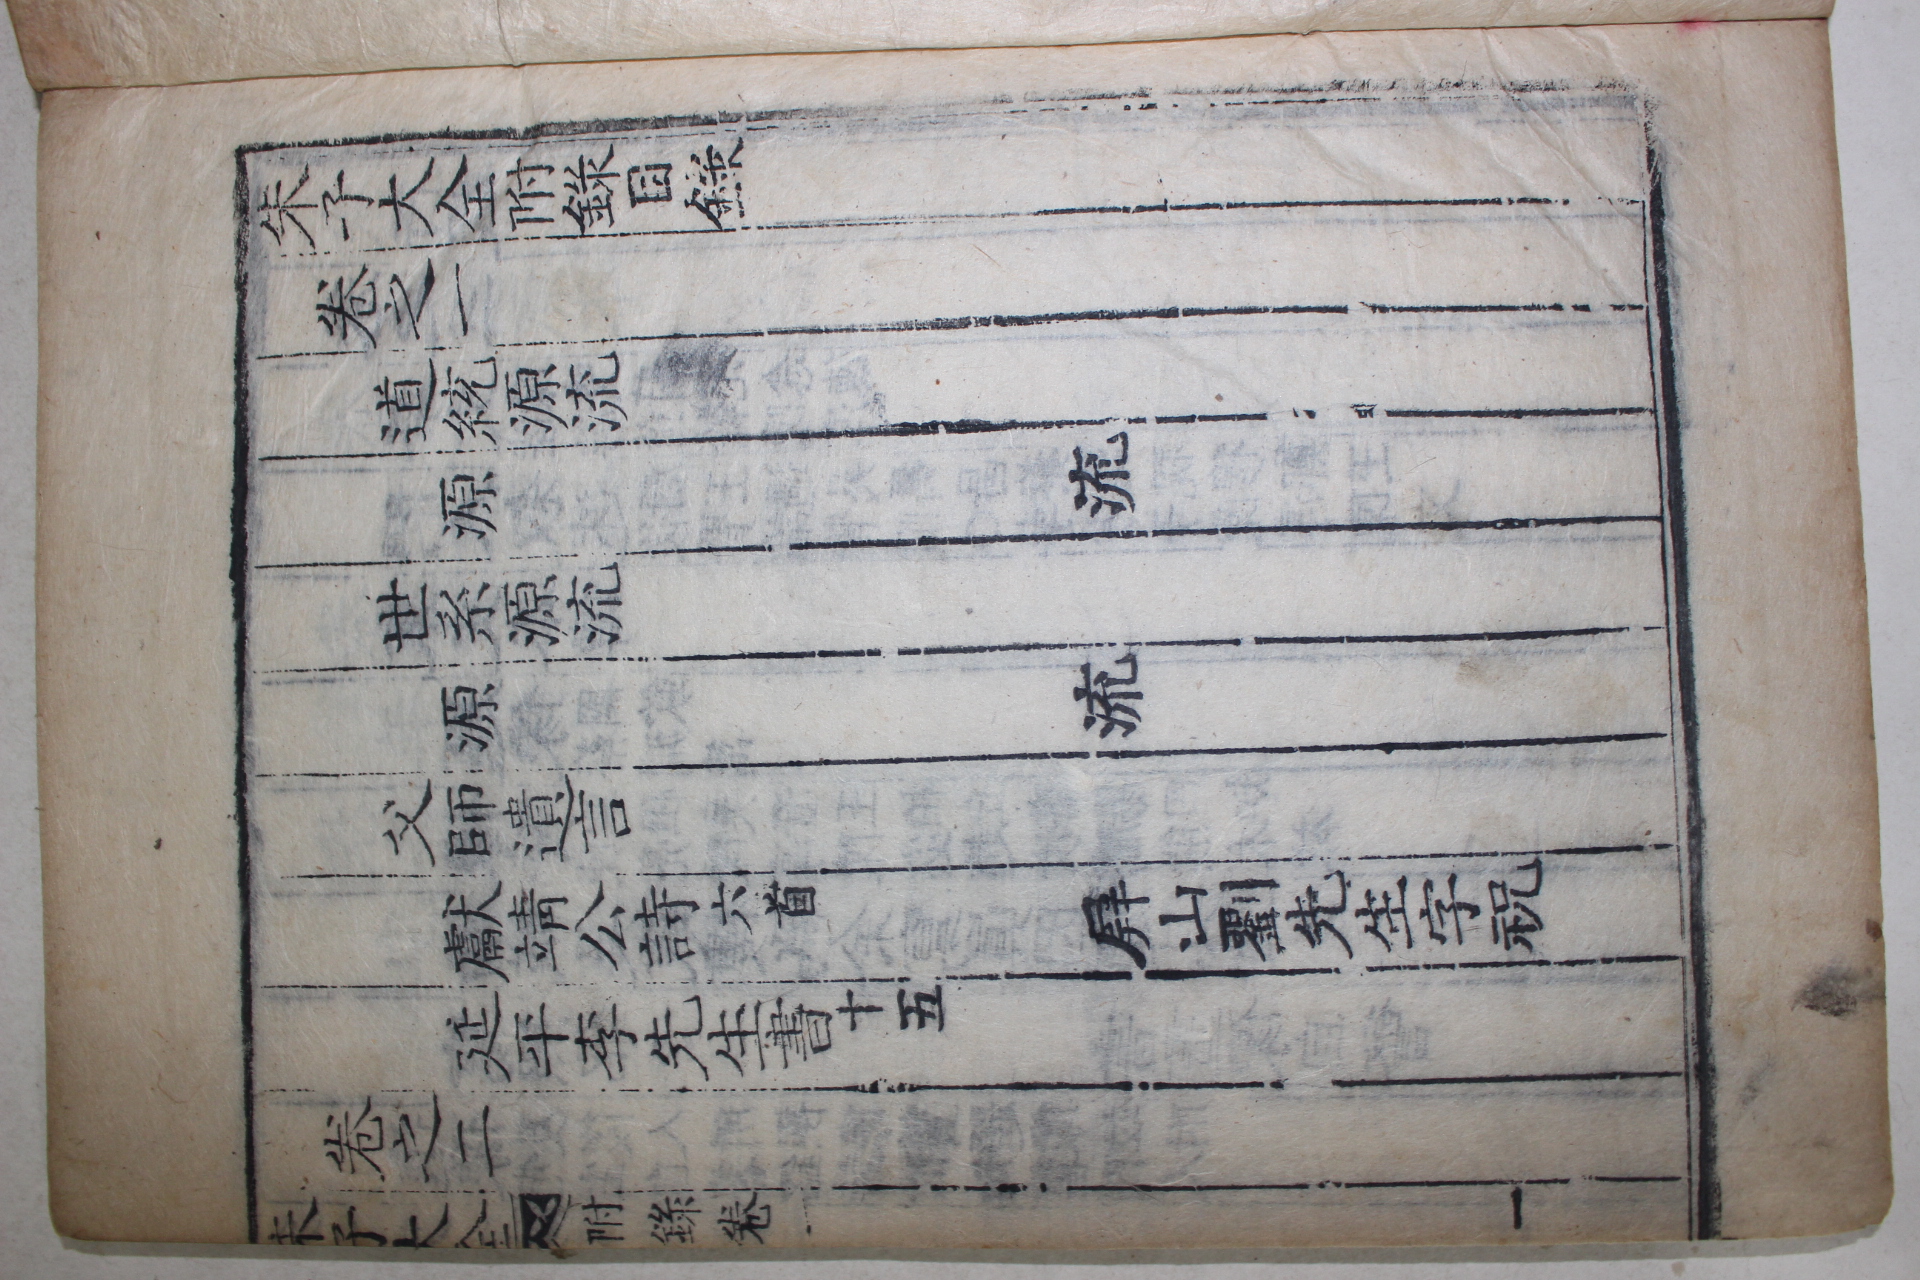 朱子大全附錄目錄
卷之一
道統源流
源 流
世系源流
源 流
父師遺言
獻靖公詩六首 屛山劉先生字祝
延平李先生書十五
卷之二
朱子大全 附錄卷 一